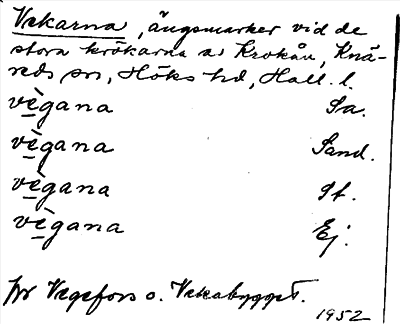 Vekarna, ängsmarker vid de
stora krökarna av Krokån, Knä-
reds sn, Höks hd, Hall. l.
vègana Sa.
vègana Sand.
vègana St.
vègana Ej.
jfr Vegefors o. Vekabygget.
1952